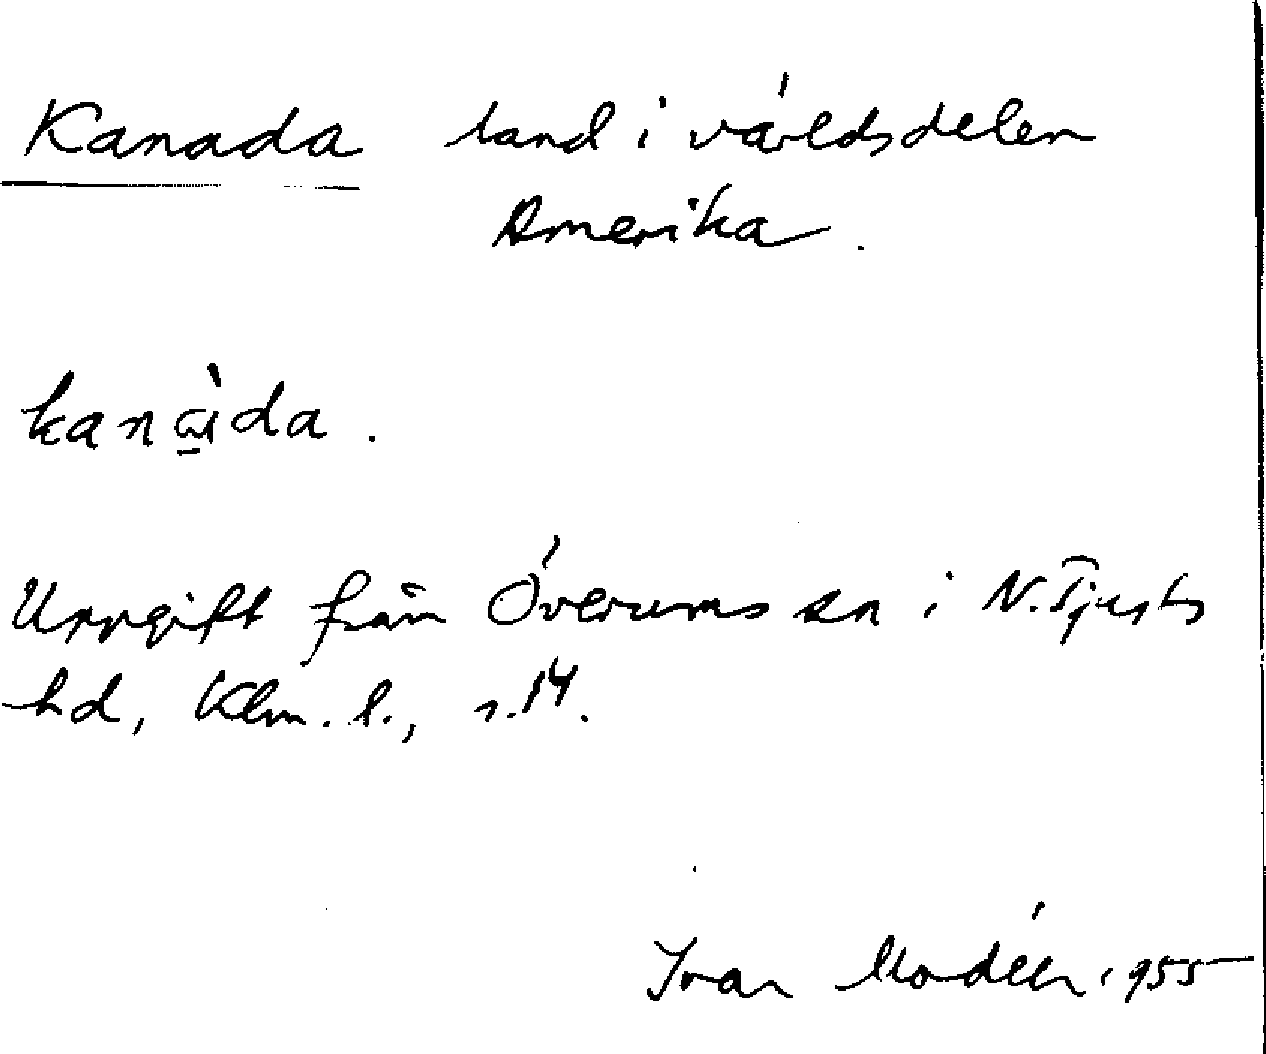 Kanada land i världsdelen
Amerika.
kanὰ̱da.
Uppgift från Överums sn i N. Tjusts
hd, Klm. l., s. 14.
Ivar Modéer 1955